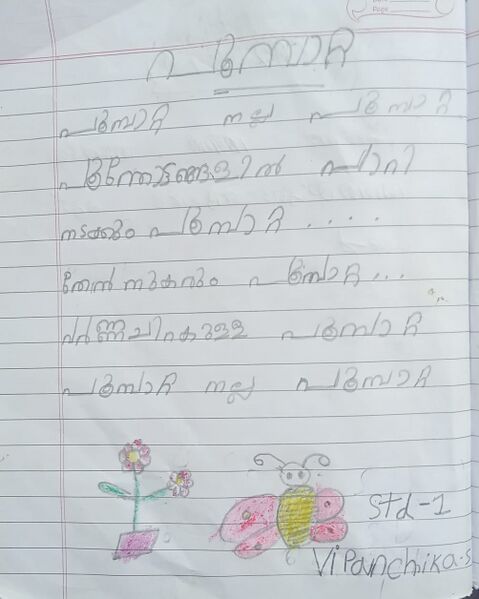 പൂമ്പാറ്റ
പൂമ്പാറ്റ നല്ല പൂമ്പാറ്റ
പൂന്തോട്ടങ്ങളിൽ പാറി
നടക്കും പൂമ്പാറ്റ . . . .
തേൻ നുകരും പൂമ്പാറ്റ . . .
വർണ്ണചിറകുള്ള പൂമ്പാറ്റ
പൂമ്പാറ്റ നല്ല പൂമ്പാറ്റ
Std-1
Vipanchika.s